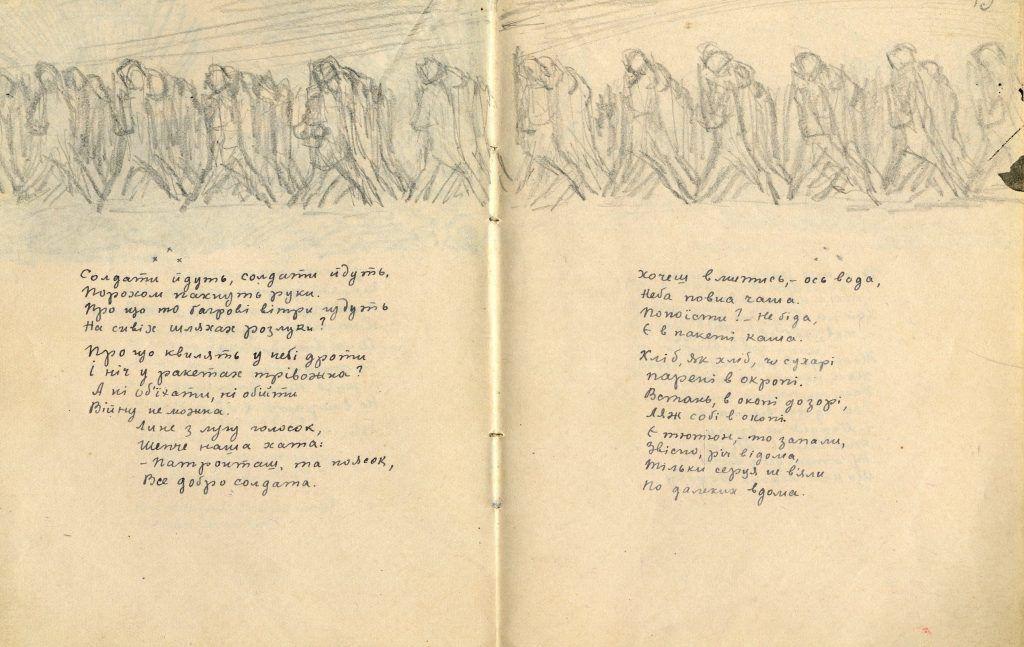 * * *
Солдати йдуть, солдати йдуть,
Порохом пахнуть руки.
Про що то багрові вітри гудуть
На сивіх шляхах розлуки?
Про що квилять у небі дроти
І ніч у ракетах трівожна?
А ні об'їхати, ні обійти
Війну не можна.
Лине з лугу голосок,
Шепче наша хата:
– Патронташ, та поясок,
Все добро солдата.
Хочеш вмитись, – ось вода,
Неба повна чаша.
Попоїсти? – Не біда,
Є в пакеті каша.
Хліб, як хліб, чи сухарі
парені в окропі.
Встань, в окопі дозорі,
Ляж собі в окопі.
Є тютюн, – то запали,
Звісно, річ відома,
Тільки серця не в'яли
По далеких вдома.